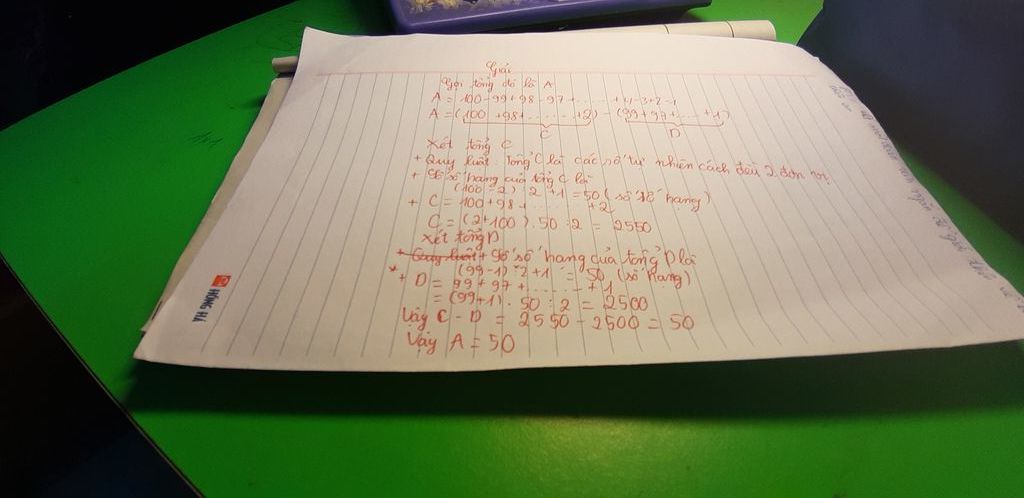 Giải
Gọi tổng đó là A
A = 100 - 99 + 98 - 97 + ........ + 4 - 3 + 2 - 1
A = (100 + 98 + ........ + 2) - (99 + 97 + ..... + 1)
C D
Xét tổng C
+ Quy luật: Tổng C là các số tự nhiên cách đều 2 đơn vị
+ Số số hạng của tổng C là
(100 - 2) : 2 + 1 = 50 (số số hạng)
+ C = 100 + 98 + ........ + 2
C = (2 + 100) . 50 : 2 = 2550
Xét tổng D
+ Quy luật + Số số hạng của tổng D là
(99 - 1) : 2 + 1 = 50 (số hạng)
* + D = 99 + 97 + ........ + 1
= (99 + 1) . 50 : 2 = 2500
Vậy C - D = 2550 - 2500 = 50
Vậy A = 50
HỒNG HÀ